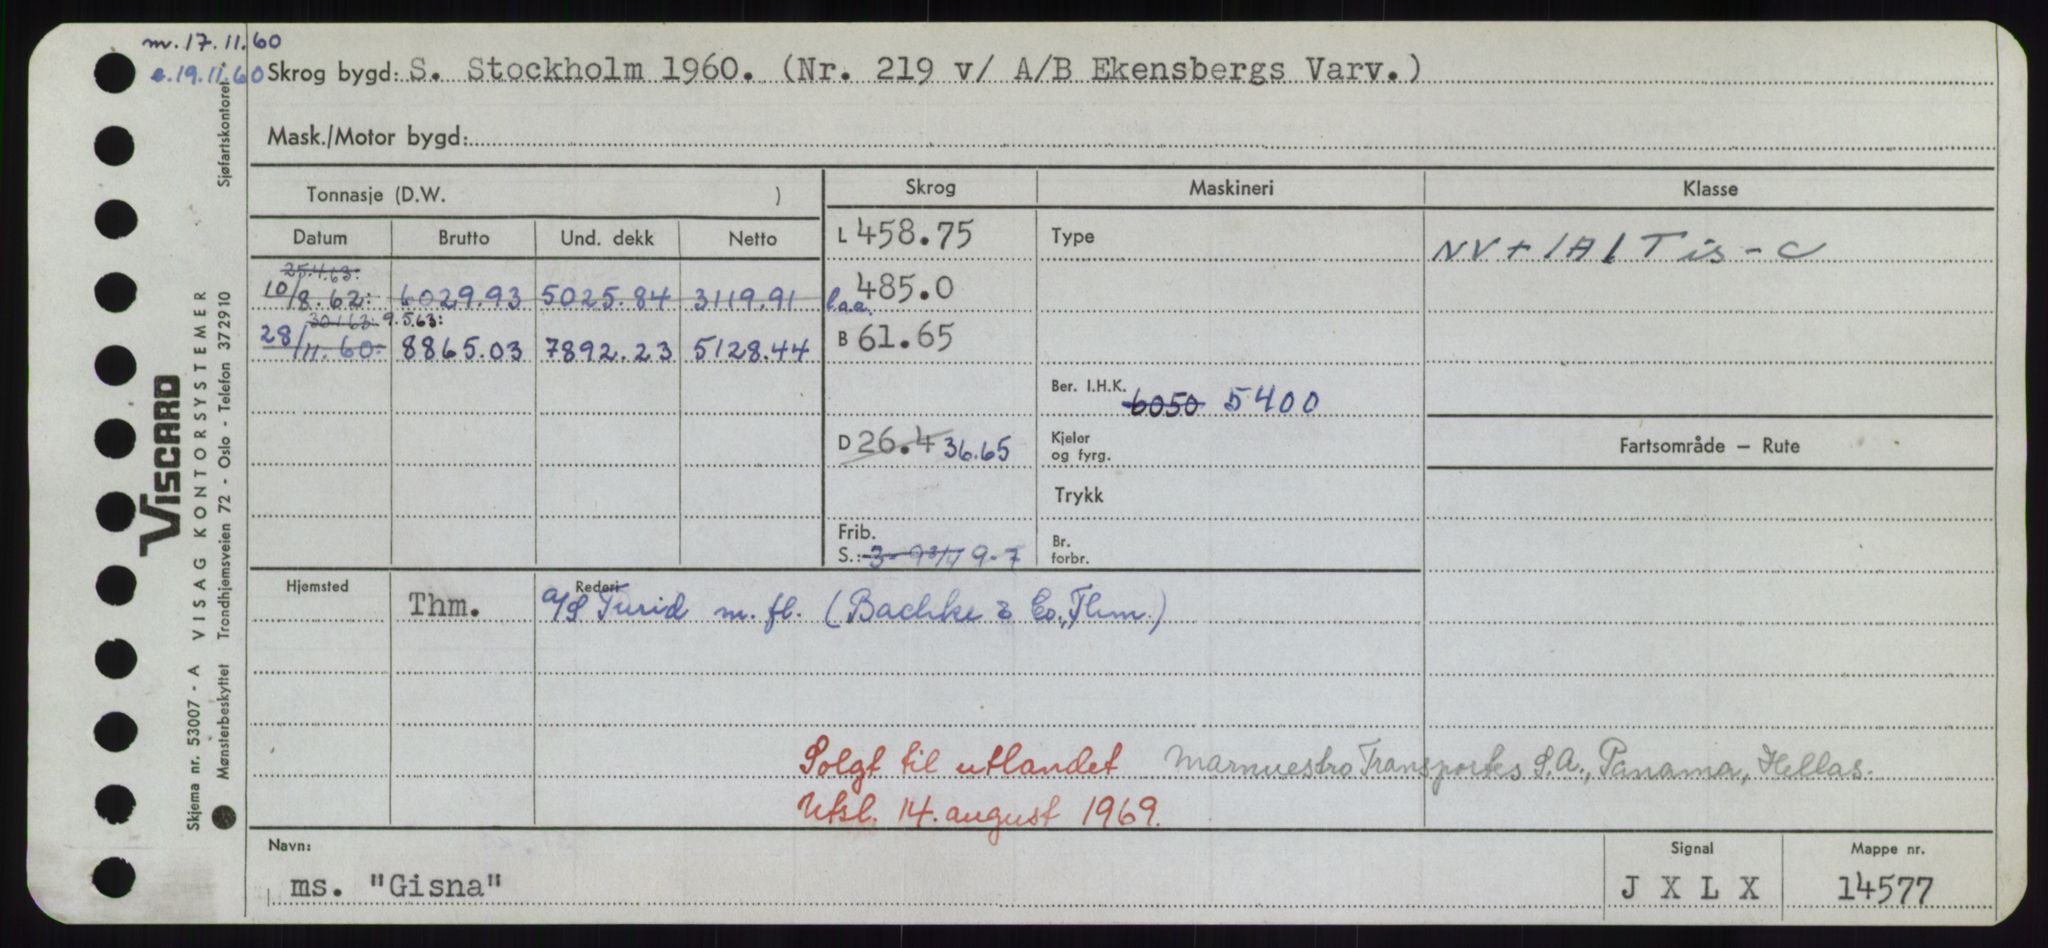 m. 17.11.60
e. 19.11.60
Skrog bygd: S. Stockholm 1960. (Nr. 219 v/ A/B Ekensbergs Varv.)
Mask./Motor bygd:
Tonnasje (D.W. )
Datum Brutto Und. dekk Netto
25.4.63:
10/8.62: 6029.93 5025.84 3119.91
9.5.63:
28/11.60: 8865.03 7892.23 5128.44
Skrog
L 458.75
l.a.a. 485.0
B 61.65
D 26.4 36.65
Frib.
S.: 9-7
Maskineri
Type
Ber. I.H.K. 6050 5400
Kjeler
og fyrg.
Trykk
Br.
forbr.
Klasse
NV + 1A1 T is - C
Fartsområde — Rute
Hjemsted Rederi
Thm. A/S Turid m. fl. (Bachke & Co., Thm.)
Solgt til utlandet Marnuestro Transportes S.A., Panama, Hellas.
Utsl. 14. august 1969.
Navn: Signal Mappe nr.
ms. "Gisna" J X L X 14577
Skjema nr. 53007 - A VISAG KONTORSYSTEMER
VISCARD
Mønsterbeskyttet Trondhjemsveien 72 - Oslo - Telefon 372910
Sjøfartskontoret